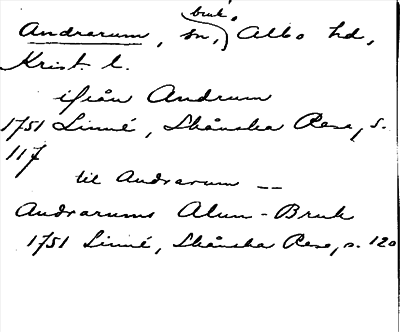 bruk,
Andrarum, sn, Albo hd,
Krist. l.
ifrån Andrum
1751 Linné, Skånska Resa, s.
117
til Andrarum --
Andrarums Alun-Bruk
1751 Linné, Skånska Resa, s. 120